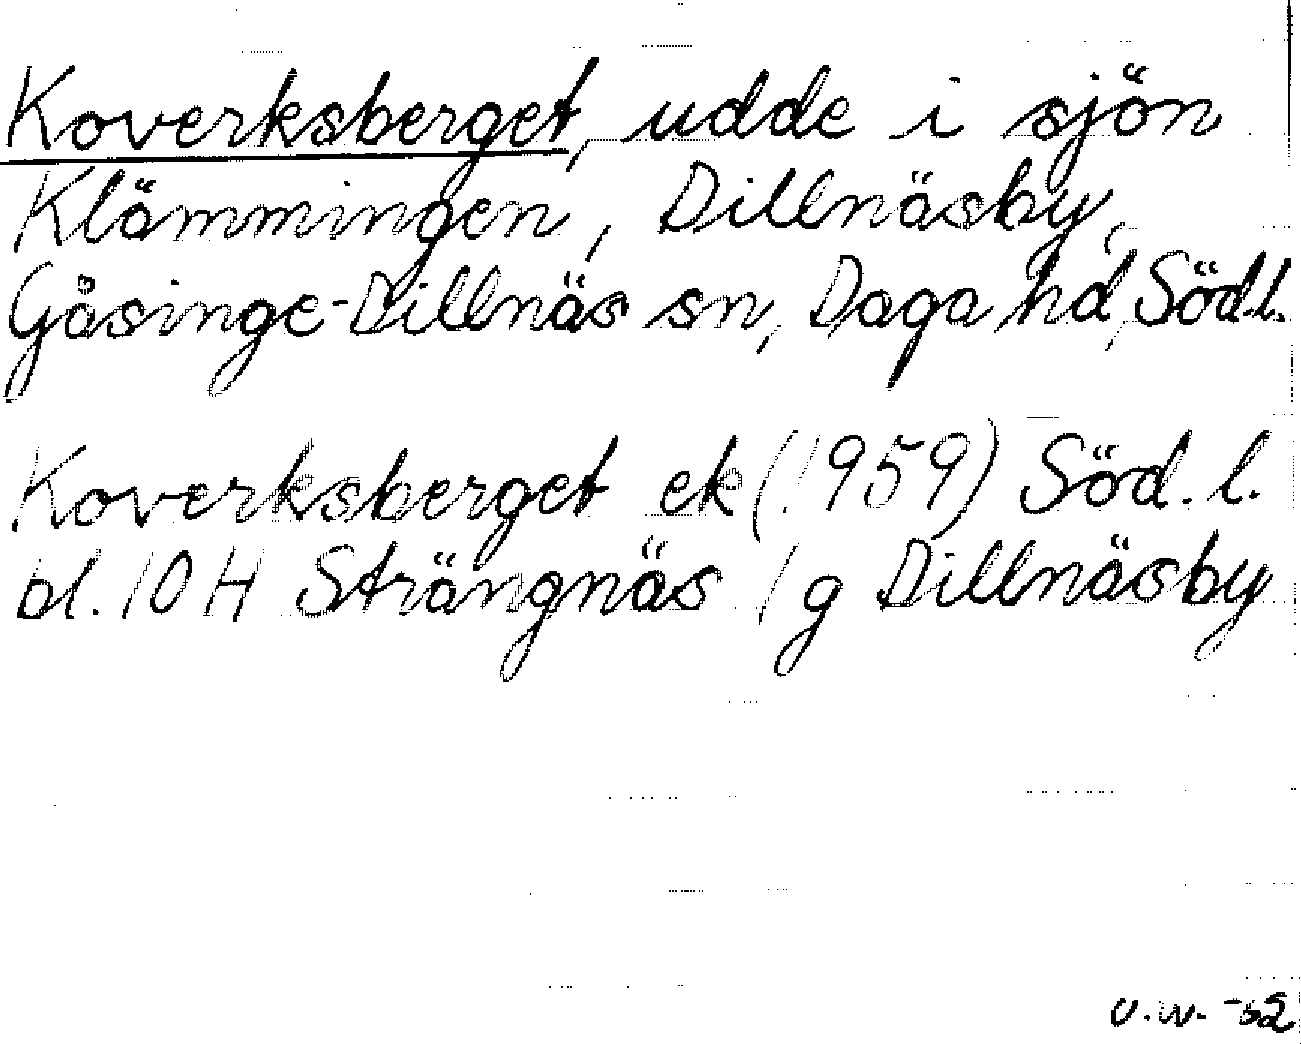 Koverksberget, udde i sjön
Klämmingen, Dillnäsby,
Gåsinge-Dillnäs sn, Daga hd, Söd.l.
Koverksberget ek (1959) Söd. l.
bl. 10 H Strängnäs 1 g Dillnäsby
U.W.